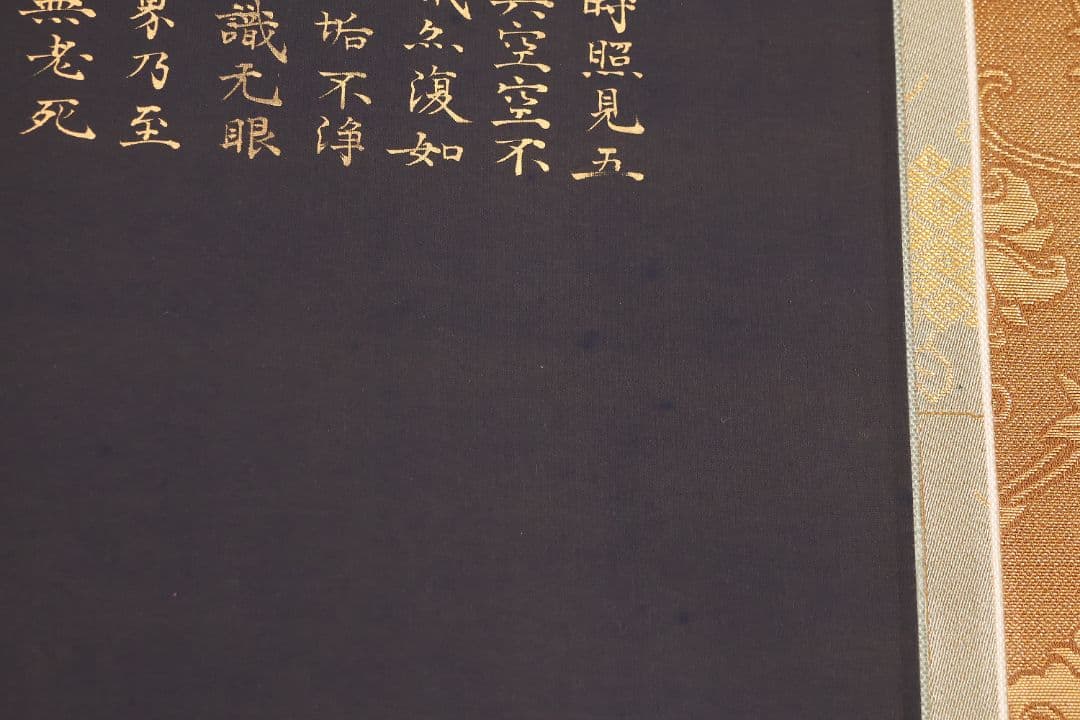 時照見五
異空空不
亦復如
垢不淨
識无眼
界乃至
無老死